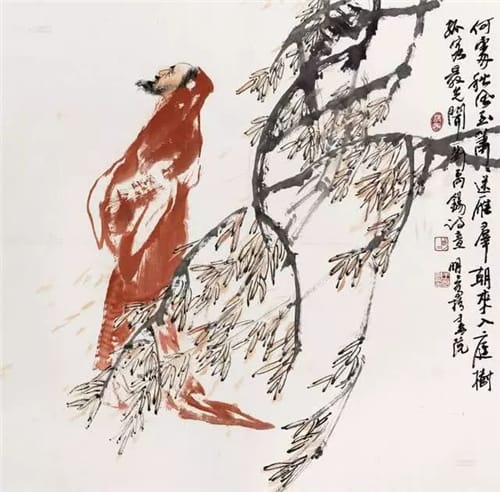 何處秋風至蕭〻送雁羣朝來入庭樹
孤客最先聞劉禹錫詩意 明 書院